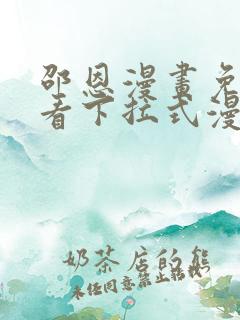 邵恩漫畫免
看下拉式漫
奶茶店的熊
未经同意禁止转载